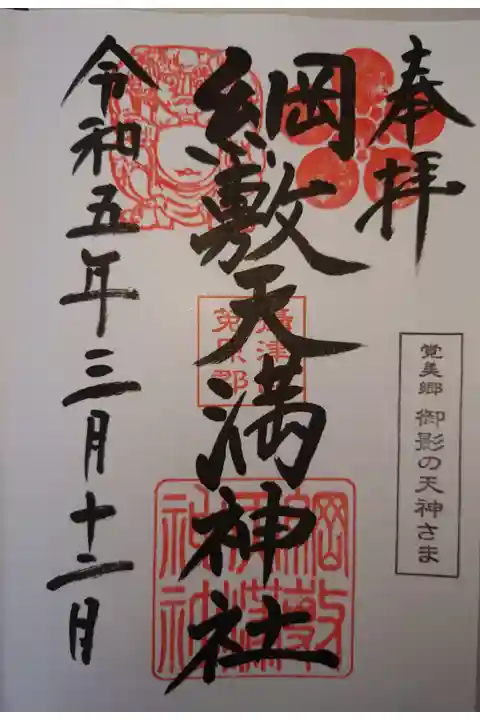 奉拝
覚美郷 御影の天神さま
綱敷天満神社
攝津
莵原郡
令和五年三月十二日